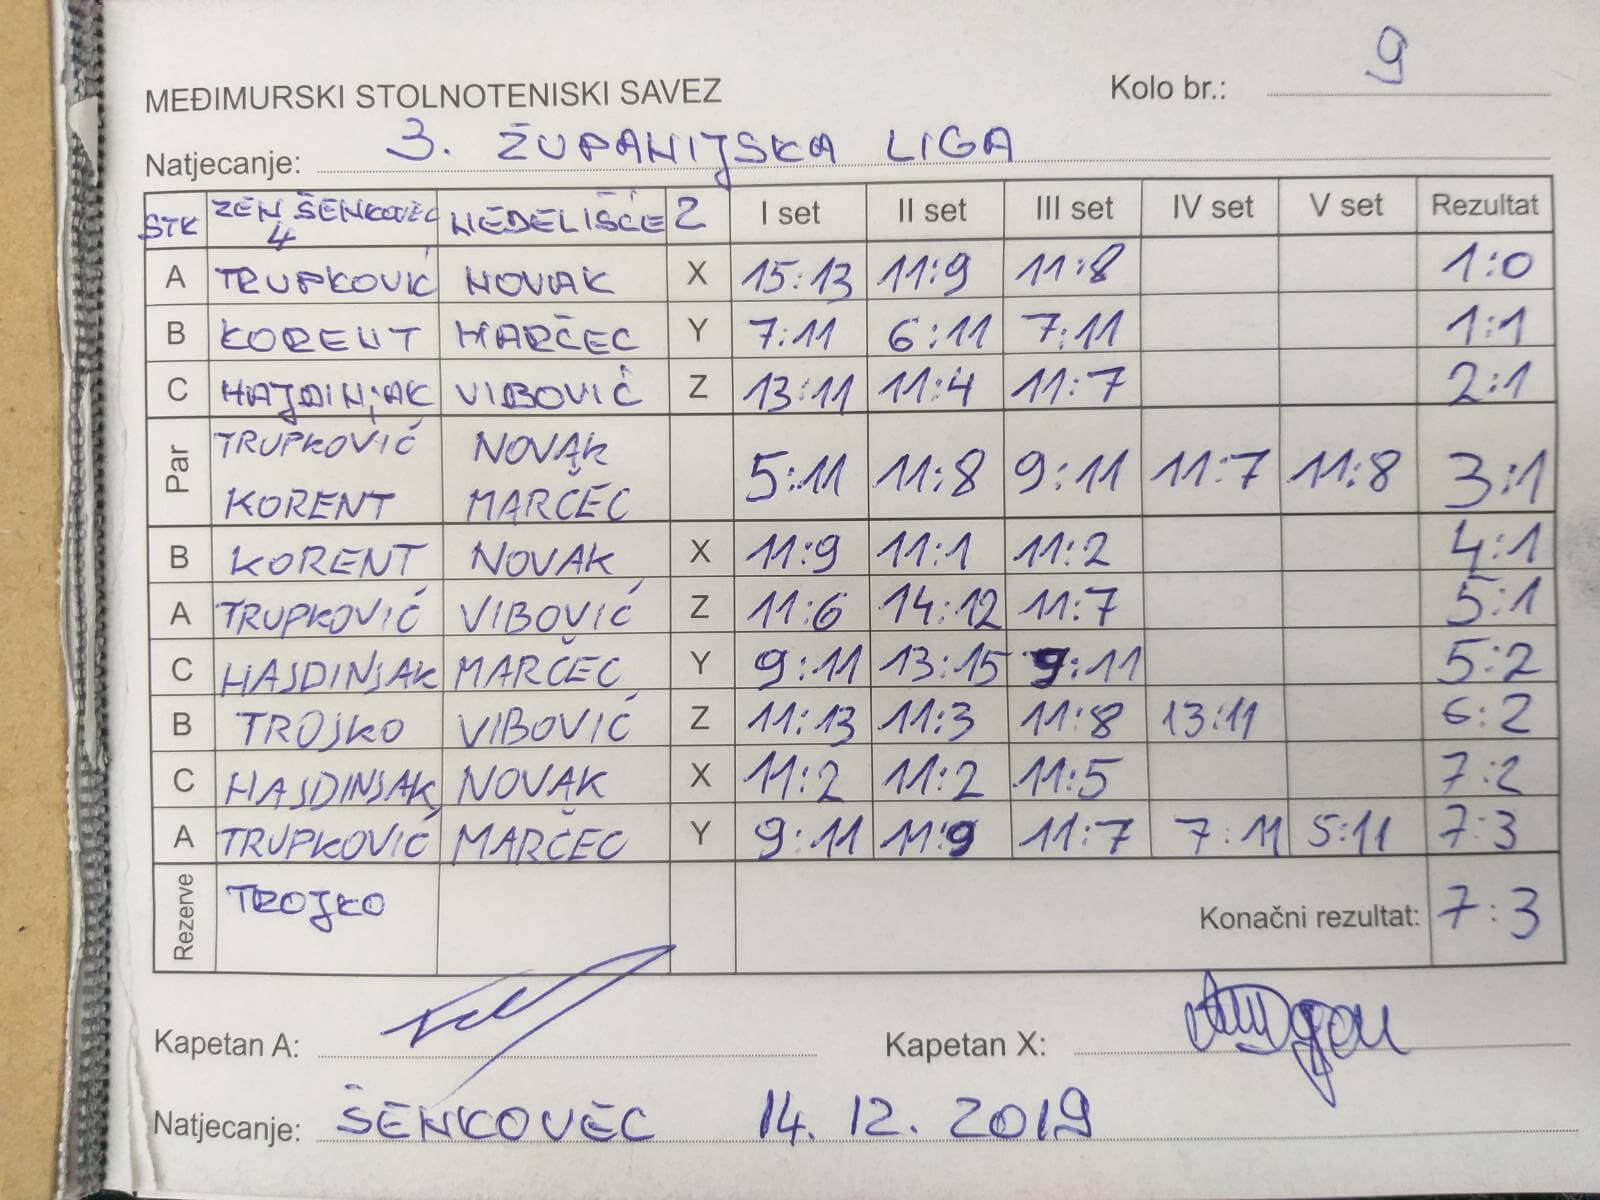 MEĐIMURSKI STOLNOTENISKI SAVEZ Kolo br.: 9
Natjecanje: 3. ŽUPANIJSKA LIGA
STK ZEN ŠENKOVEC 4 NEDELIŠĆE 2 I set II set III set IV set V set Rezultat
A TRUPKOVIĆ NOVAK X 15:13 11:9 11:8 1:0
B KORENT MARČEC Y 7:11 6:11 7:11 1:1
C HAJDINJAK VIBOVIĆ Z 13:11 11:4 11:7 2:1
Par TRUPKOVIĆ KORENT NOVAK MARČEC 5:11 11:8 9:11 11:7 11:8 3:1
B KORENT NOVAK X 11:9 11:1 11:2 4:1
A TRUPKOVIĆ VIBOVIĆ Z 11:6 14:12 11:7 5:1
C HAJDINJAK MARČEC Y 9:11 13:15 9:11 5:2
B TROJKO VIBOVIĆ Z 11:13 11:3 11:8 13:11 6:2
C HAJDINJAK NOVAK X 11:2 11:2 11:5 7:2
A TRUPKOVIĆ MARČEC Y 9:11 11:9 11:7 7:11 5:11 7:3
Rezerve TROJKO Konačni rezultat: 7:3
Kapetan A: Kapetan X:
Natjecanje: ŠENKOVEC 14. 12. 2019